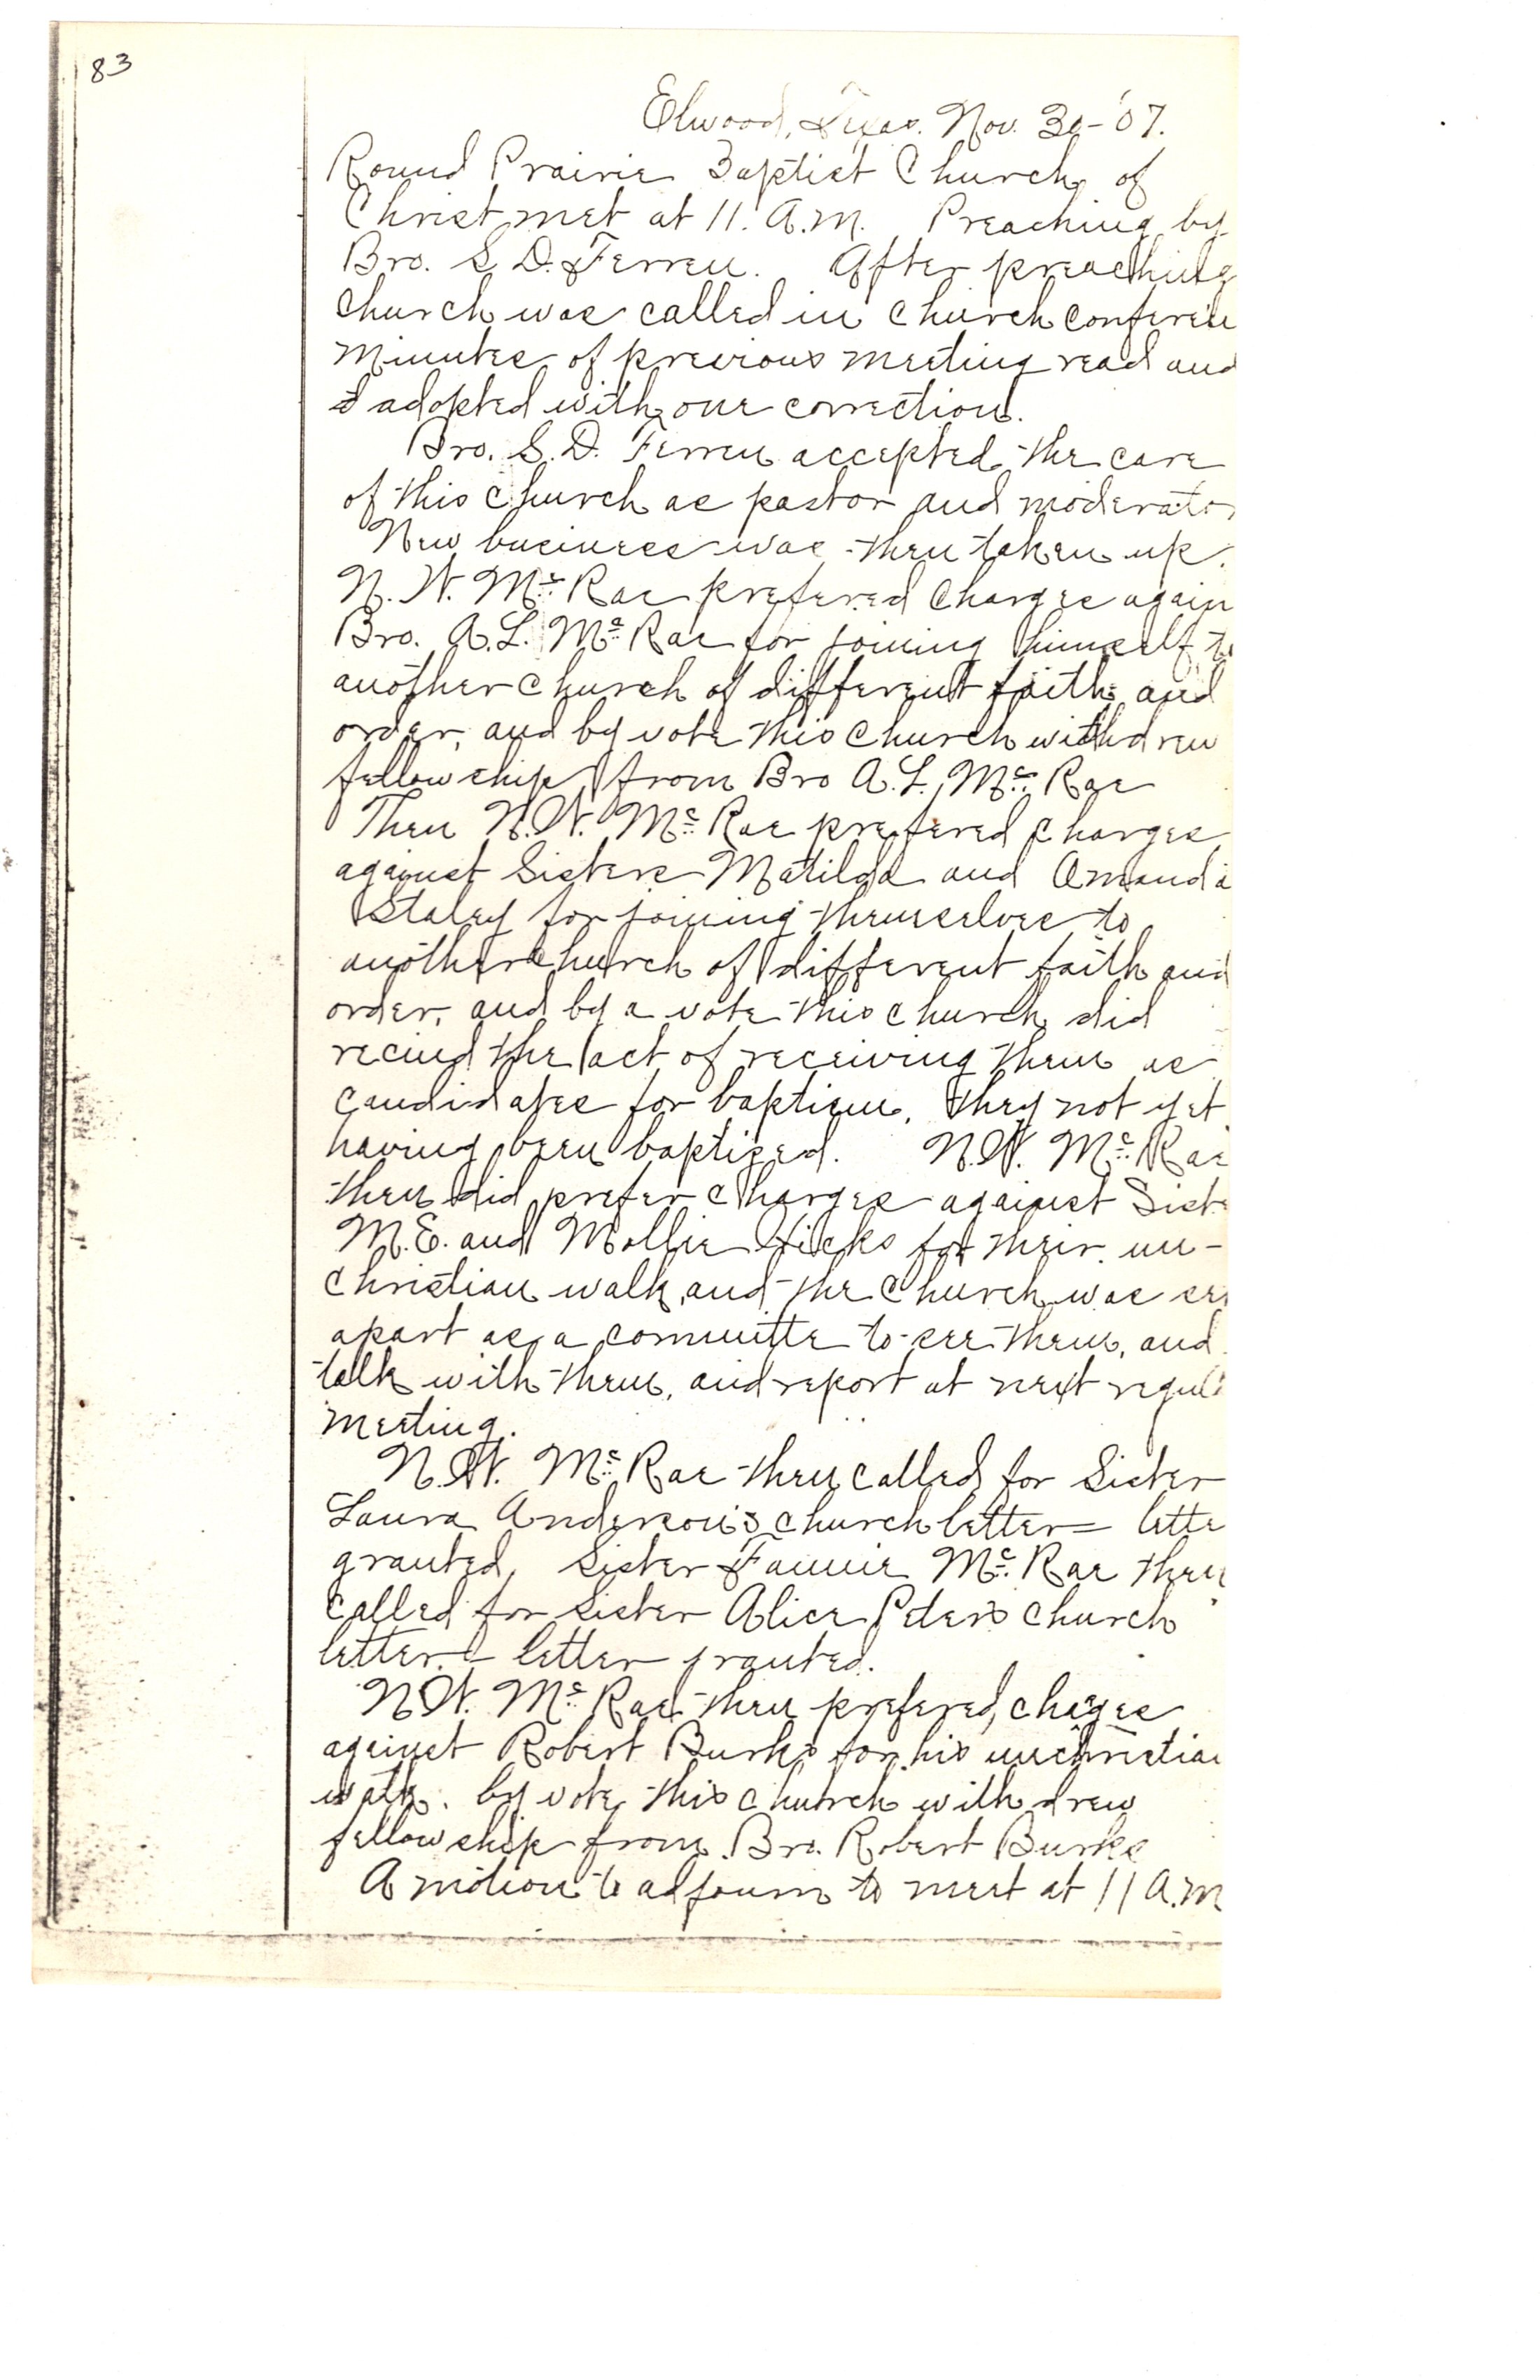 83
Elwood, Texas. Nov. 30-'07.
Round Prairie Baptist Church of
Christ met at 11. A.M. Preaching by
Bro. S. D. Ferren. After preaching
church was called in church conferen
Minutes of previous meeting read and
adopted with one correction.
Bro. S. D. Ferren accepted the care
of this church as pastor and moderator
New business was then taken up.
N. W. Mc Rae prefered charges again
Bro. A. L. Mc Rae for joining himself to
another church of different faith and
order, and by vote this church withdrew
fellowship from Bro A. L. Mc Rae
Then N. W. Mc Rae prefered charges
against Sisters Matilda and Amanda
Staley for joining themselves to
another church of different faith and
order, and by a vote this church did
recind the act of receiving them as
candidates for baptism, they not yet
having been baptized. N. W. Mc Rae
then did prefer charges against Siste
M. E. and Mollie Hicks for their un-
christian walk, and the church was se
apart as a committe to see them, and
talk with them, and report at next regula
meeting.
N. W. Mc Rae then called for Sister
Laura Anderson's church letter = lette
granted, Sister Fannie Mc Rae then
called for sister Alice Peters church
letter - letter granted.
N. W. Mc Rae then prefered chages
against Robert Burks for his unchristian
walk. by vote this church withdrew
fellowship from Bro. Robert Burks
A motion to adjourn to meet at 11 A.M